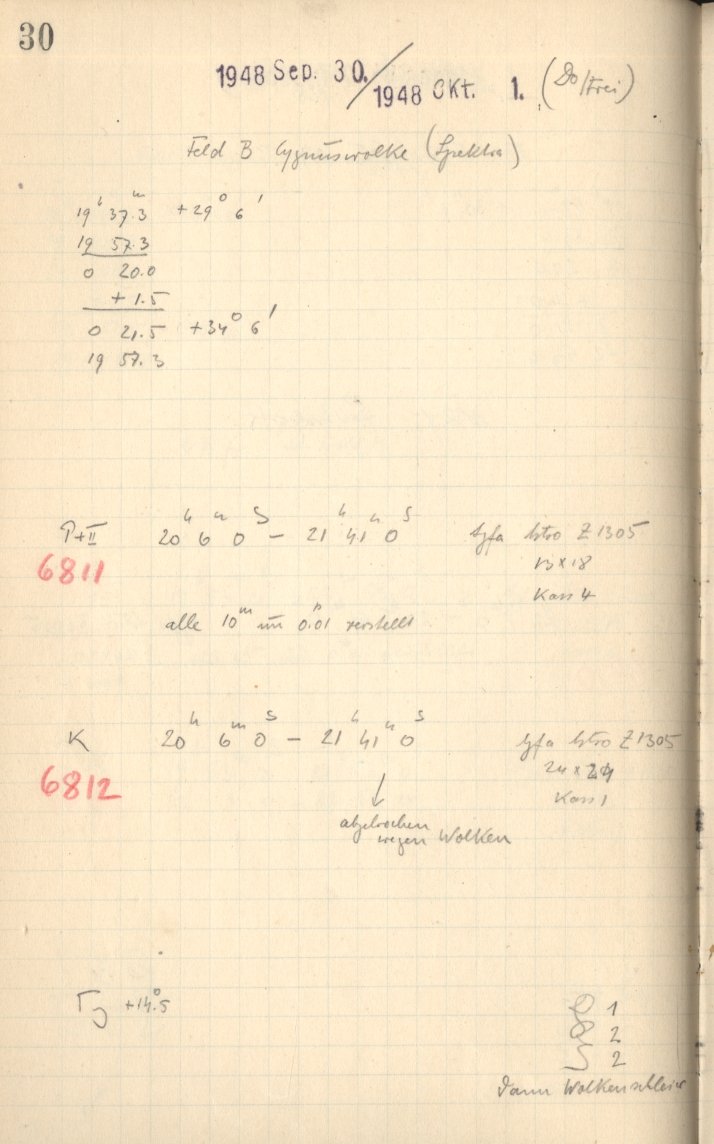 30
1948 Sep. 30./1948 Okt. 1. (Do/Frei)
Feld B Cygnuswolke (Spektra)
19ʰ 37.3ᵐ +29° 6'
19 57.3
0 20.0
+ 1.5
0 21.5 +34° 6'
19 57.3
P+II 20ʰ 6ᵐ 0ˢ – 21ʰ 41ᵐ 0ˢ Agfa Astro Z 1305
6811
13 x 18
Kass 4
alle 10ᵐ um 0.01 verstellt
K 20ʰ 6ᵐ 0ˢ – 21ʰ 41ᵐ 0ˢ Agfa Astro Z 1305
6812
24 x 24
Kass 1
abgebrochen
wegen Wolken
+14.°5
1
2
2
dann Wolkenschleier